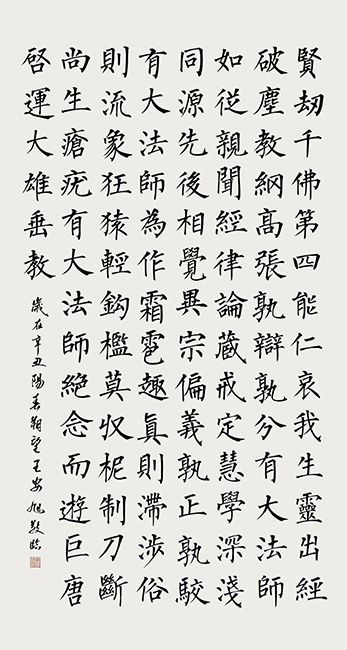 賢劫千佛第四能仁哀我生靈出經
破塵教綱高張孰辯孰分有大法師
如從親聞經律論藏戒定慧學深淺
同源先後相覺異宗偏義孰正孰駮
有大法師為作霜雹趣真則滯涉俗
則流象狂猿輕鉤檻莫収柅制刀斷
尚生瘡疣有大法師絕念而遊巨唐
啓運大雄垂教
歲在辛丑陽春朔望王安旭敬臨